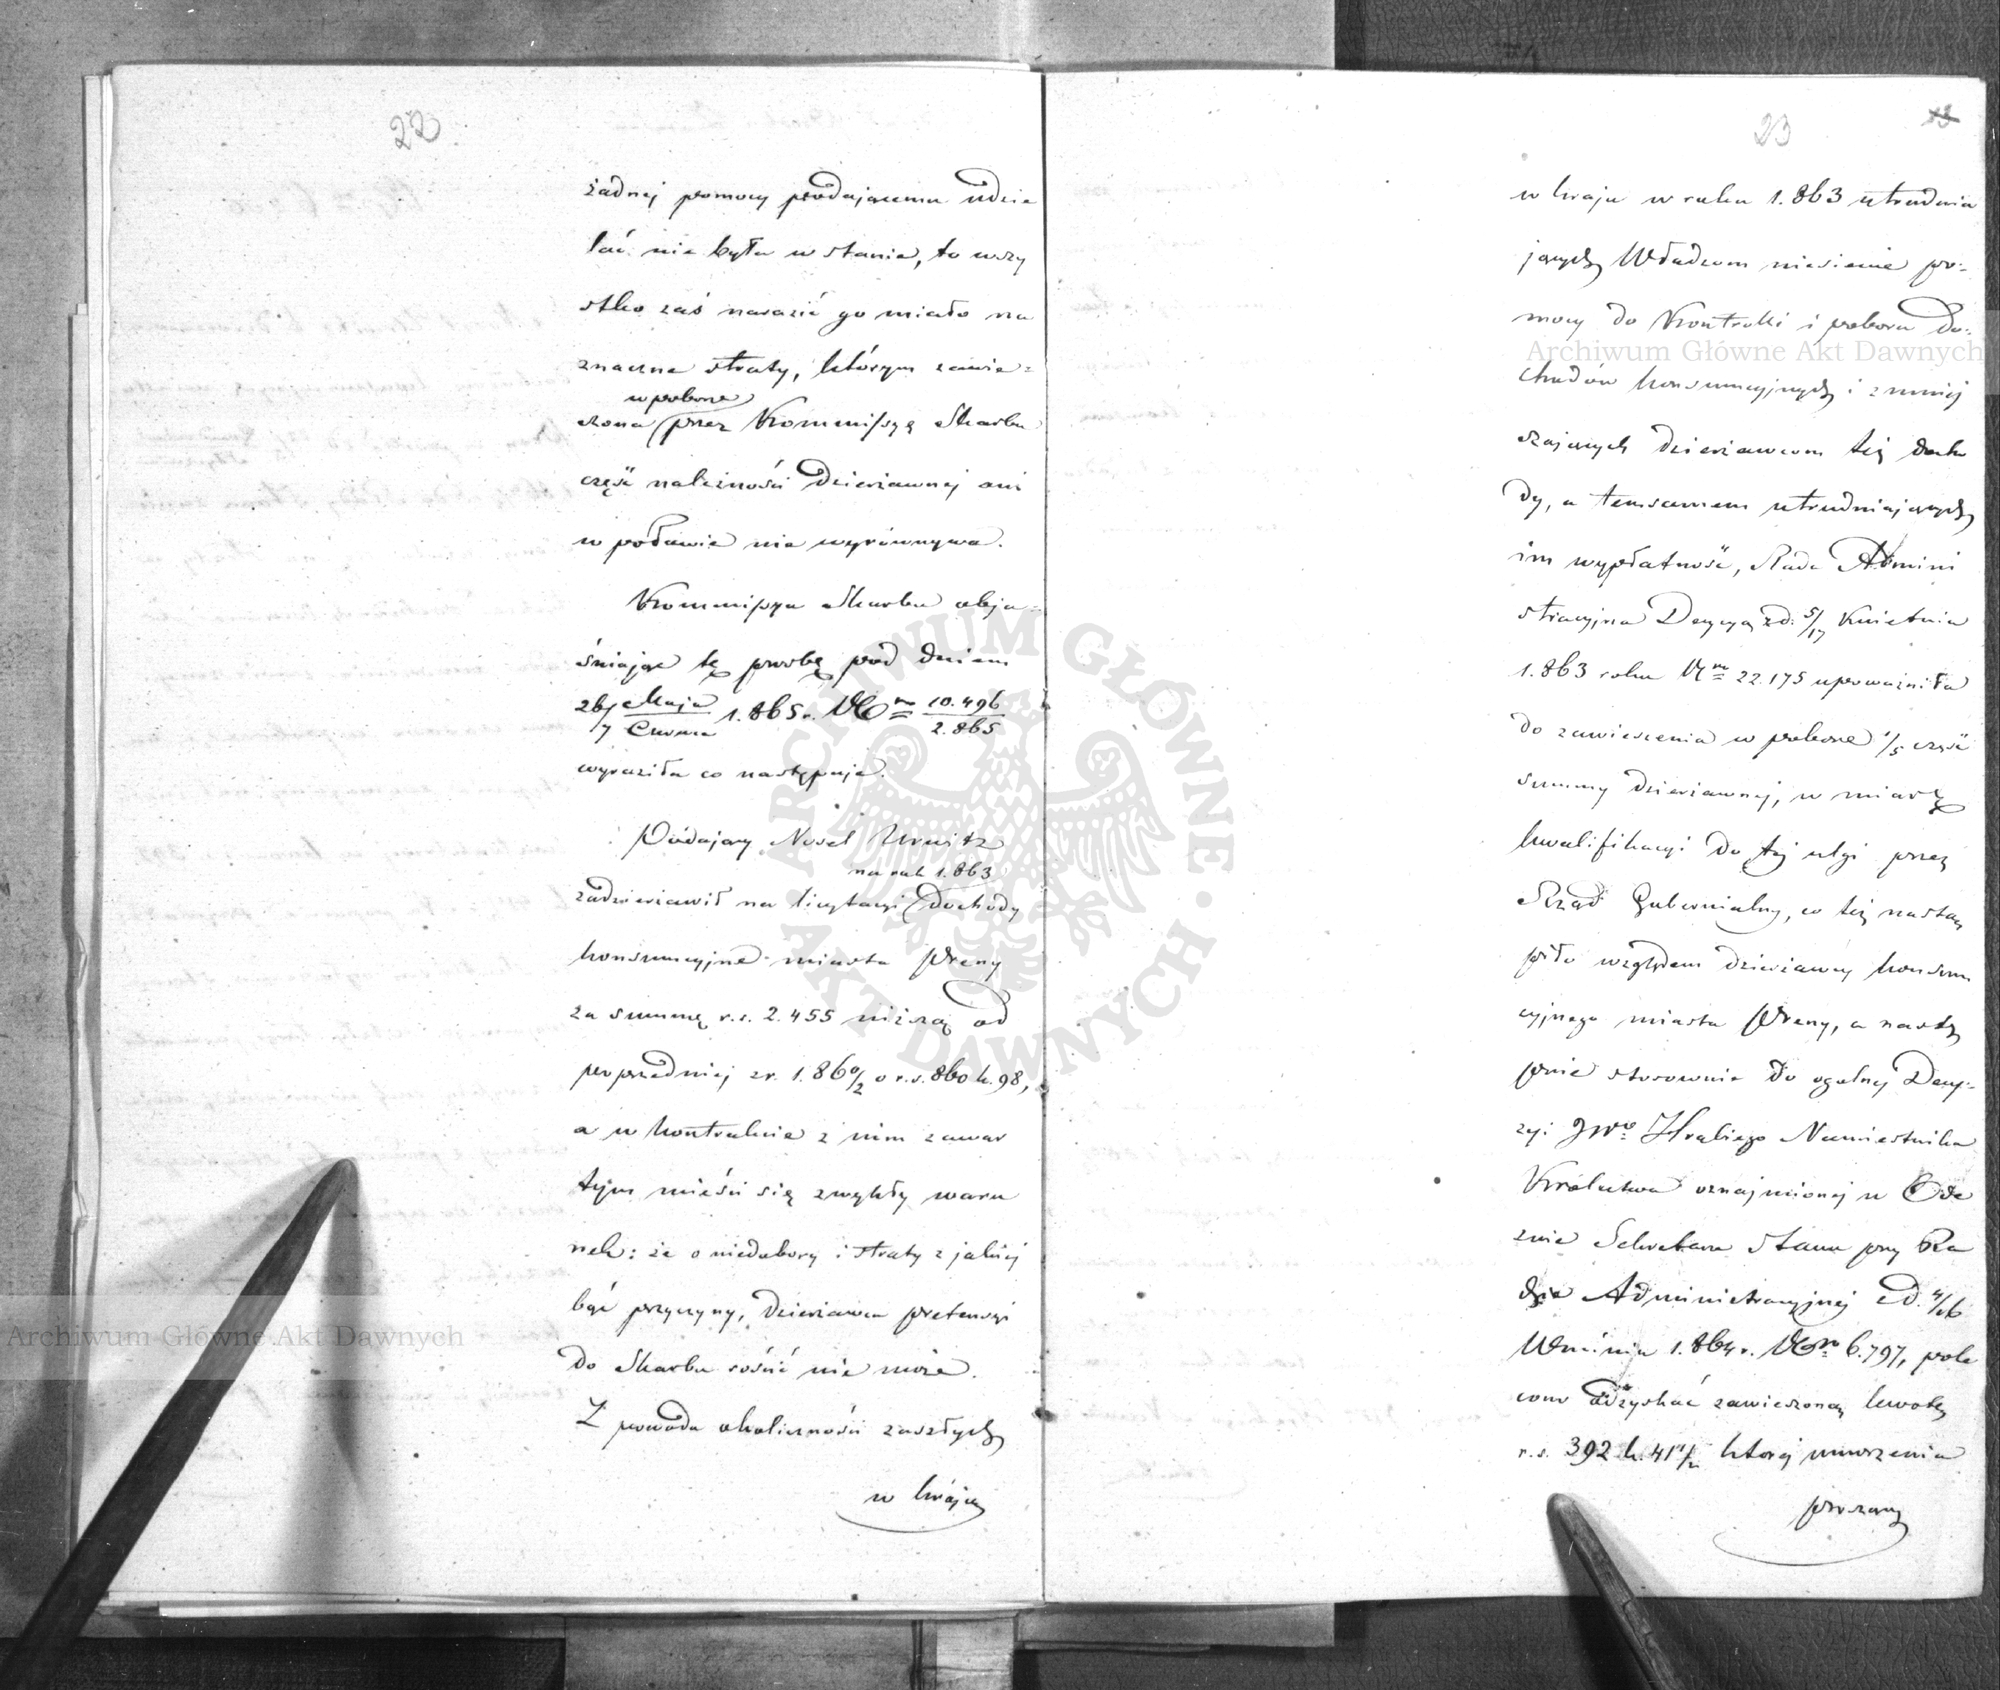 22
żadnej pomocy podającemu udzie
lać nie była w stanie, to wszy
stko zaś narazić go miało na
znaczne straty, którym zawie=
w poborze
szona przez Kommissyę Skarbu
część należności dzierżawnej ani
w połowie nie wyrównywa.
Kommissya Skarbu obja=
śniając tę prośbę pod dniem
26/7 Maja/Czerwca 1.865 r. No 10.496/2.865
wyraziła co następuje.
Podający Nosel Urwitz
na rok 1.863
zadzierżawił na licytacyi dochody
konsumcyjne miasta Preny
za summę r.s. 2.455 niższą od
poprzedniej z r. 1.860/2 o r.s. 860 k. 98,
a w kontrakcie z nim zawar
tym mieści się zwykły waru
nek: że o niedobory i straty z jakiej
bąć przyczyny, dzierżawca pretensyi
do Skarbu rościć nie może.
Z powodu okoliczności zaszłych
w kraju
23
w kraju w roku 1.863 utrudnia
jących Władzom niesienie po=
mocy do Kontrolli i poboru do=
chodów konsumcyjnych i zmniej
szających dzierżawcom tej docho
dy, a temsamem utrudniających
im wypłatność, Rada Admini
stracyjna Decyzyą z d. 5/17 Kwietnia
1.863 roku No 22.175 upoważniła
do zawieszenia w poborze 1/5 część
summy dzierżawnej, w miarę
kwalifikacyi do tej ulgi przez
Rząd Gubernialny, co też nastą
piło względem dzierżawcy konsum
cyjnego miasta Preny, a nastę
pnie stosownie do ogólnej Decy=
zyi JWo Hrabiego Namiestnika
Królestwa oznajmionej w Ode
zwie Sekretarza Stanu przy Ra
dzie Administracyjnej z d. 4/16
Września 1.864 r. No 6.797, pole
cono odzyskać zawieszoną kwotę
r.s. 392 k. 41 1/2 której umorzenia
proszący
Archiwum Główne Akt Dawnych
Archiwum Główne Akt Dawnych
ARCHIWUM GŁÓWNE AKT DAWNYCH